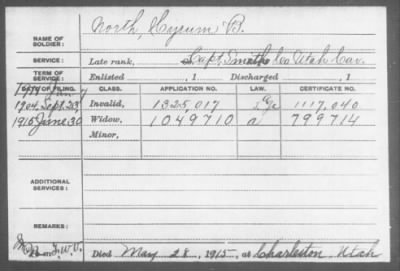 NAME OF SOLDIER: North, Hyrum B.
SERVICE: Late rank, Capt. Smith's Co Utah Cav.
TERM OF SERVICE: Enlisted , 1 Discharged , 1
DATE OF FILING. CLASS. APPLICATION NO. LAW. CERTIFICATE NO.
1904, Sept. 23 Invalid, 1325,017 1117,040
1915 June 30 Widow, 1049710 a 799714
Minor,
ADDITIONAL SERVICES:
REMARKS:
Died May 28, 1915, at Charleston, Utah